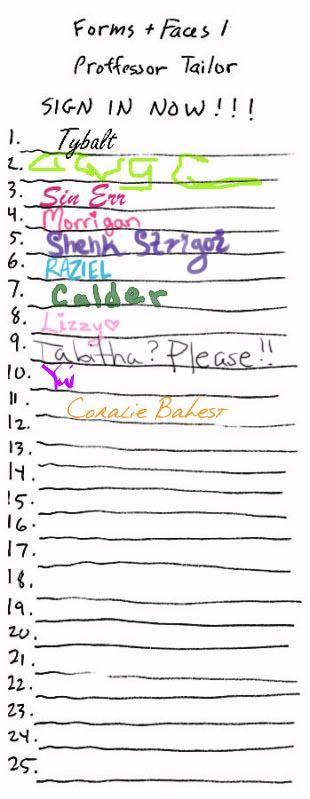 Forms + Faces 1
Proffessor Tailor
SIGN IN NOW!!!
1. Tybalt
2.
3. Sin Err
4. Morrigan
5. Shenk Strigoi
6. RAZIEL
7. Calder
8. Lizzy♡
9. Tabitha? Please!!
10. Yui
11. Coralie Bahest
12.
13.
14.
15.
16.
17.
18.
19.
20.
21.
22.
23.
24.
25.